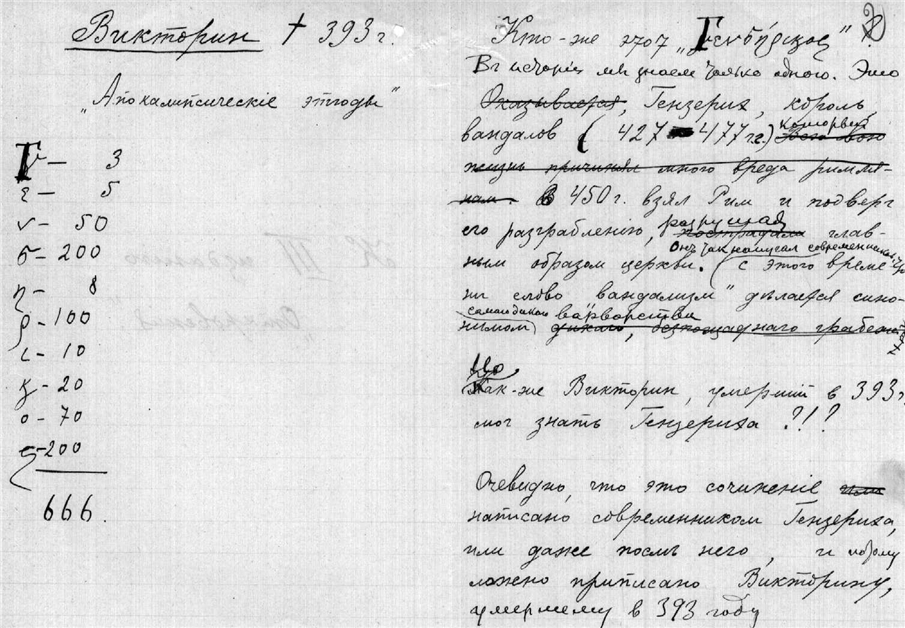 Викторин † 393 г.
„Апокалипсические этюды"
Г — 3
ε — 5
ν — 50
σ — 200
η — 8
ρ — 100
ι — 10
κ — 20
ο — 70
ς — 200
666.
Кто-же этот „Генсерикос"
В исторiи мы знаем только одного. Это
Оказывается, Гензерих, король
вандалов (427 — 477 гг.) который всю свою
жизнь причинял много вреда римля-
нам. В 450 г. взял Рим и подверг
его разграбленiю, разрушая пострадали глав-
ным образом церкви. Он, так написал современник (с этого време-
ни слово „вандализм" делается сино-
нимом) самого дикого варварства дикаго, безпощаднаго грабежа
Но
Как-же Викторин, умерший в 393 г.
мог знать Гензериха ?!?
Очевидно, что это сочиненiе или
написано современником Гензериха,
или даже послѣ него, и потому
ложно приписано Викторину,
умершему в 393 году
К III изданию
"Откровения"